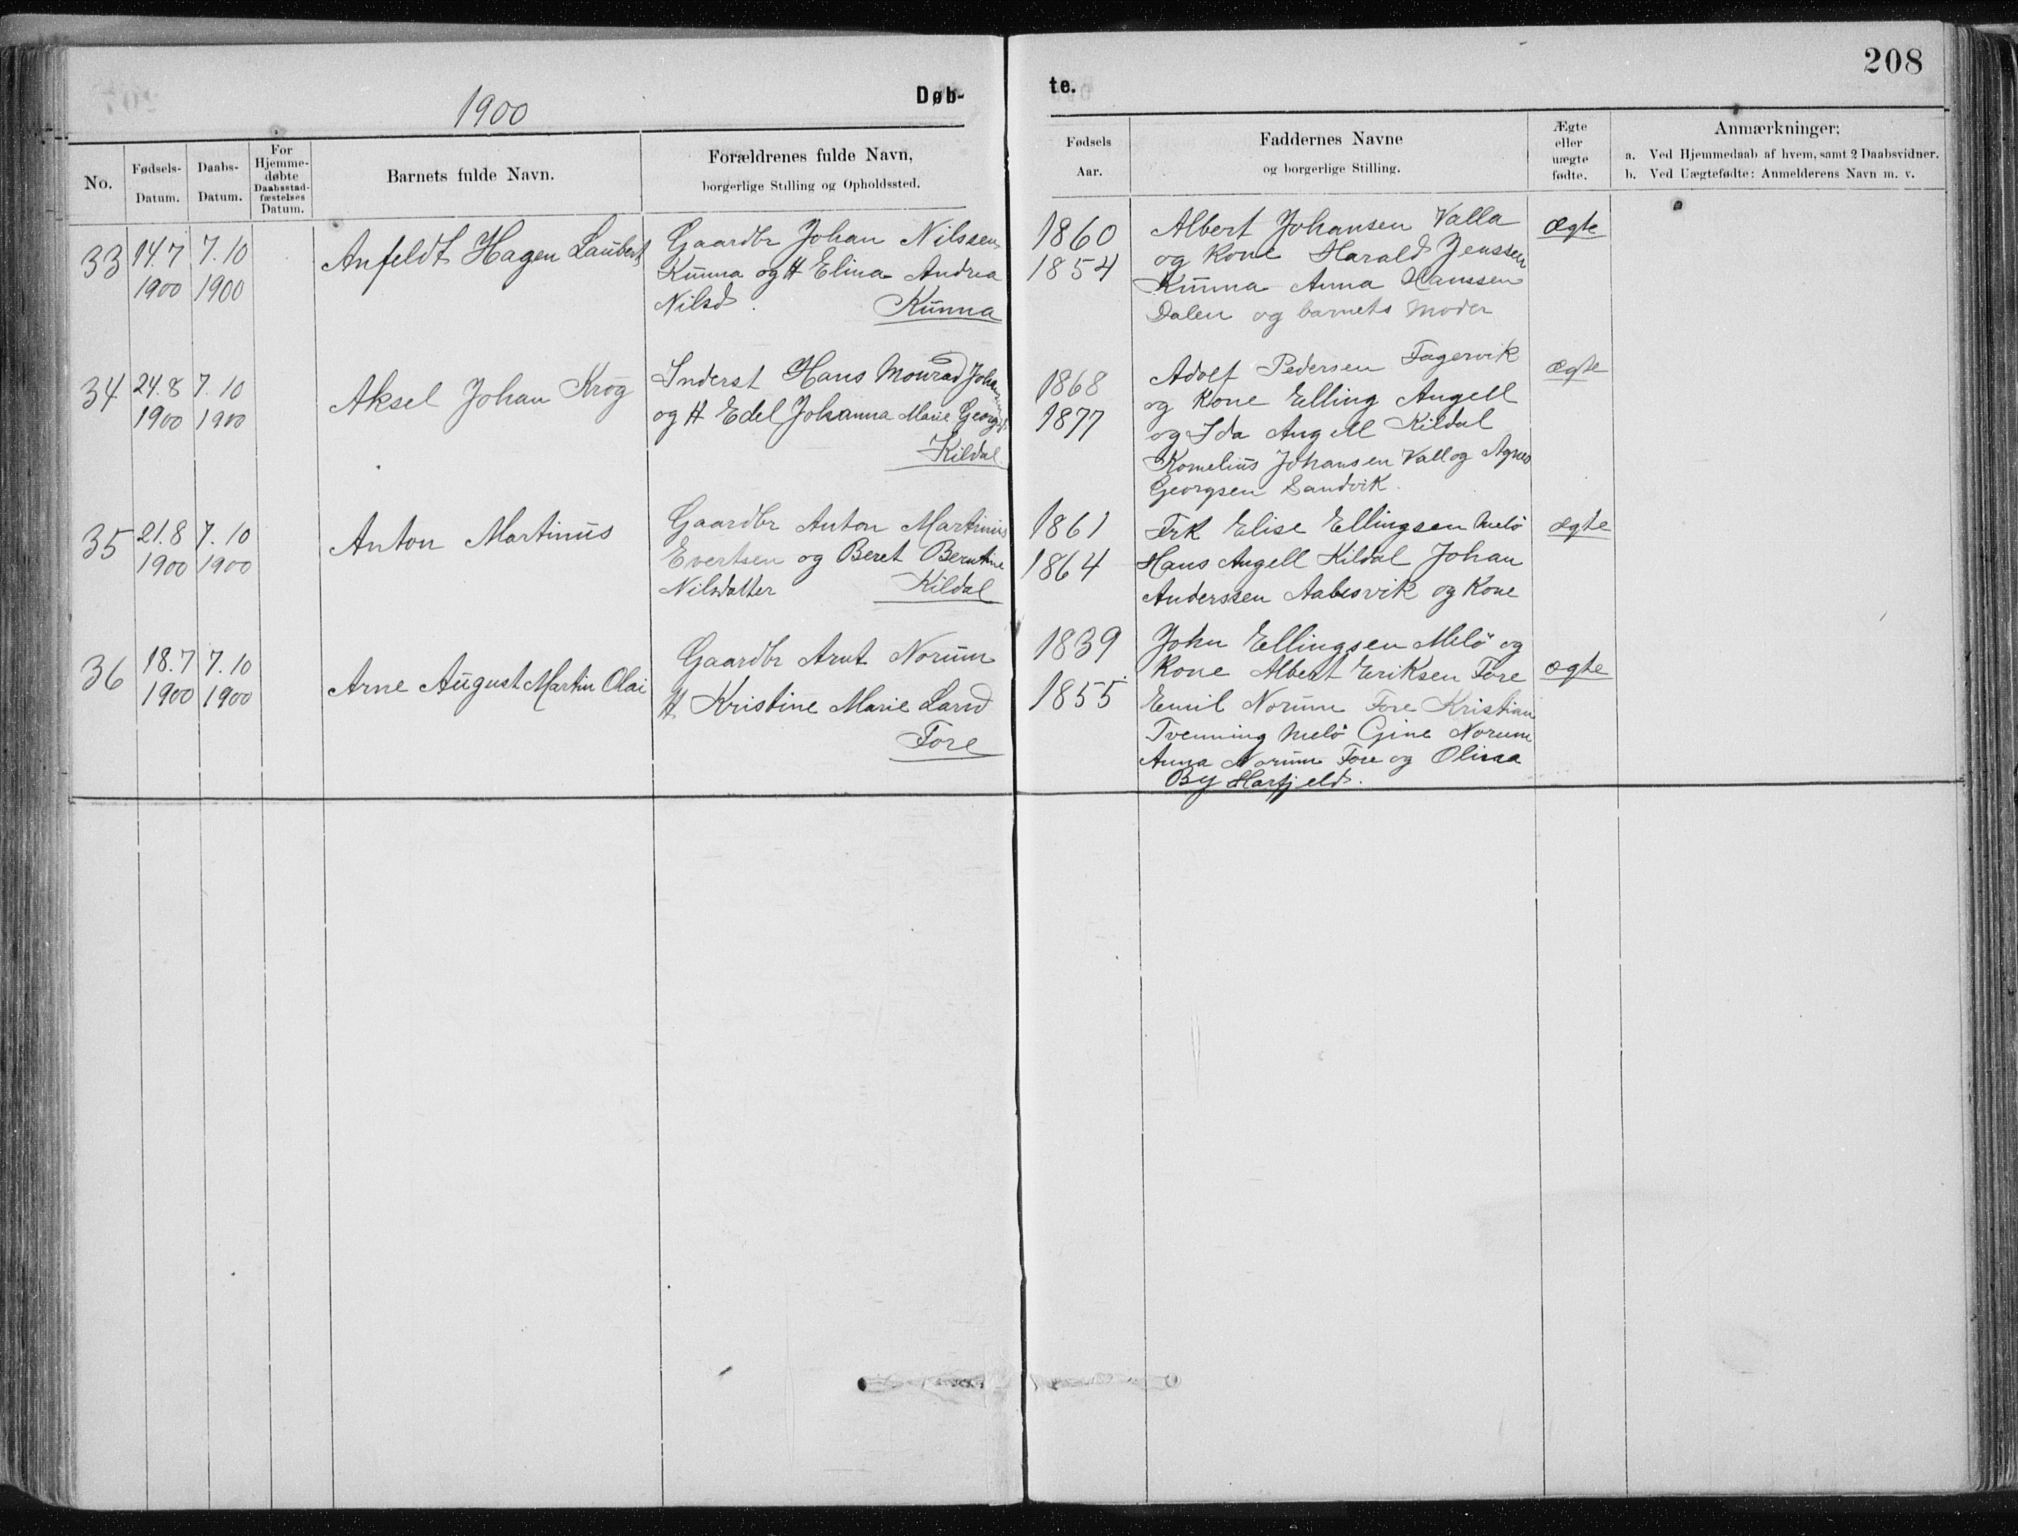 208
1900
Døb-
te.
No.
Fødsels-
Datum.
Daabs-
Datum.
For
Hjemme-
døbte
Daabsstad-
fæstelses
Datum.
Barnets fulde Navn.
Forældrenes fulde Navn,
borgerlige Stilling og Opholdssted.
Fødsels
Aar.
Faddernes Navne
og borgerlige Stilling.
Ægte
eller
uægte
fødte.
Anmærkninger;
a. Ved Hjemmedaab af hvem, samt 2 Daabsvidner.
b. Ved Uægtefødte: Anmelderens Navn m. v.
33
14.7
1900
7.10
1900
Anfeldt Hagen Laubert
Gaardbr Johan Nilssen
Kunna og H Elina Andrea
Nilsd.
Kunna
1860
1854
Albert Johansen Valla
og Kone Harald Jenssen
Kunna Anna Hanssen
Dalen og barnets Moder
ægte
34
24.8
1900
7.10
1900
Aksel Johan Krog
Inderst Hans Monrad
og H Edel Johanna Marie
Kildal
1868
1877
Adolf Pedersen Fagervik
og Kone Elling Angell
og Ida Angell Kildal
Kornelius Johansen Vall og Agnes
Georgsen Sandvik.
ægte
35
21.8
1900
7.10
1900
Anton Martinus
Gaardbr Anton Martinus
Evertsen og Beret Berntine
Nilsdatter
Kildal
1861
1864
Frk Elise Ellingsen Melö
Hans Angell Kildal Johan
Anderssen Aabesvik og Kone
ægte
36
18.7
1900
7.10
1900
Arne August Martin Olai
Gaardbr Arnt Norum
H Kristine Marie Larsd
Fore
1839
1855.
John Ellingsen Melö og
Kone Albert Eriksen Fore
Emil Norum Fore Kristian
Tvenning Melö Gine Norum
Anna Norum Fore og
By
ægte